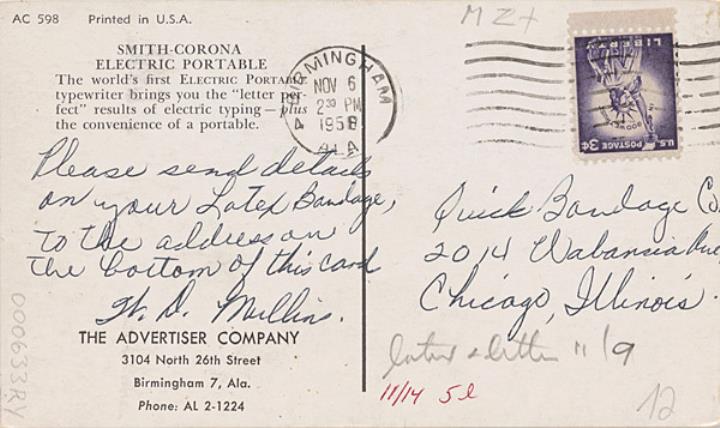 AC 598 Printed in U.S.A.
SMITH-CORONA
ELECTRIC PORTABLE
The world's first ELECTRIC PORTABLE
typewriter brings you the "letter per-
fect" results of electric typing—plus
the convenience of a portable.
BIRMINGHAM
NOV 6
2 30 PM
1958
ALA
M Z+
U.S. POSTAGE 3¢
LIBERTY
IN GOD WE TRUST
Please send details
on your Latex Bandage,
to the address on
the bottom of this card
W. D. Mullins.
Quick Bandage Co.
2014 Wabansia Ave,
Chicago, Illinois.
THE ADVERTISER COMPANY
3104 North 26th Street
Birmingham 7, Ala.
Phone: AL 2-1224
000633RY
letter 11/9
11/14 5l
12